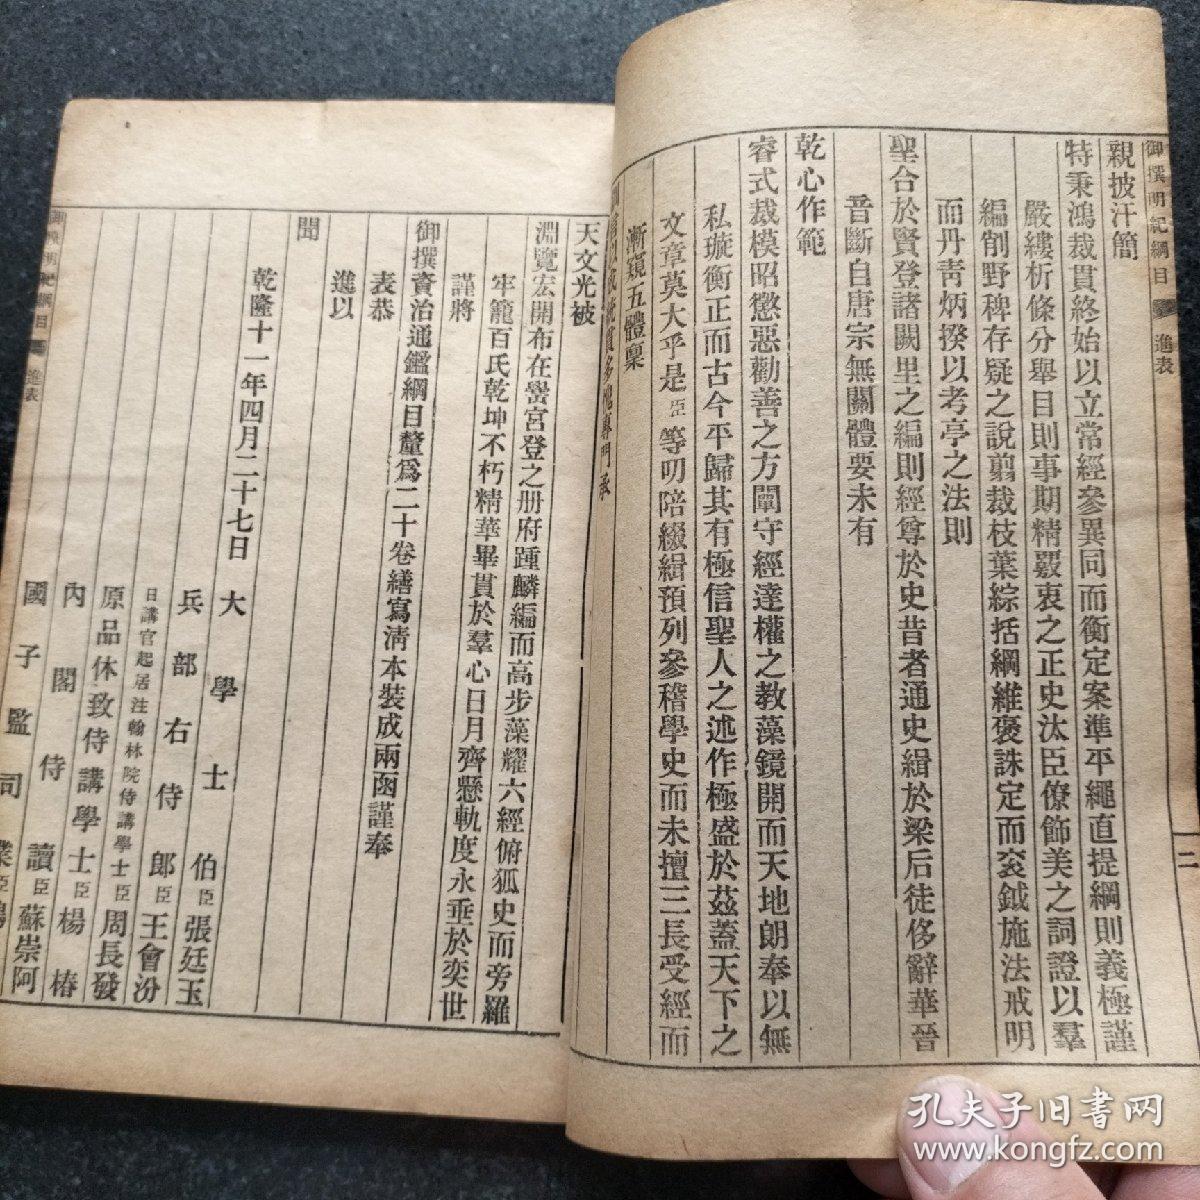 御撰明紀綱目
進表
二
親披汗簡
特秉鴻裁貫終始以立常經參異同而衡定案準平繩直提綱則義極謹
嚴縷析條分舉目則事期精覈衷之正史汰臣僚飾美之詞證以羣
編削野稗存疑之說翦裁枝葉綜括綱維褒誅定而袞鉞施法戒明
而丹青炳揆以考亭之法則
聖合於賢登諸闕里之編則經尊於史昔者通史緝於梁后徒侈辭華晉
晉斷自唐宗無關體要未有
乾心作範
睿式裁模昭懲惡勸善之方闡守經達權之教藻鏡開而天地朗奉以無
私璇衡正而古今平歸其有極信聖人之述作極盛於茲蓋天下之
文章莫大乎是臣等叨陪綴緝預列參稽學史而未擅三長受經而
漸窺五體稟
專門承
天文光被
淵覽宏開布在黌宮登之册府踵麟編而高步藻耀六經俯狐史而旁羅
牢籠百氏乾坤不朽精華畢貫於羣心日月齊懸軌度永垂於奕世
謹將
御撰資治通鑑綱目釐爲二十卷繕寫清本裝成兩函謹奉
表恭
進以
聞
乾隆十一年四月二十七日
大學士伯臣張廷玉
兵部右侍郎臣王會汾
日講官起居注翰林院侍講學士臣周長發
原品休致侍講學士臣楊椿
內閣侍讀臣蘇崇阿
國子監司業臣
進表
孔夫子旧书网
www.kongfz.com